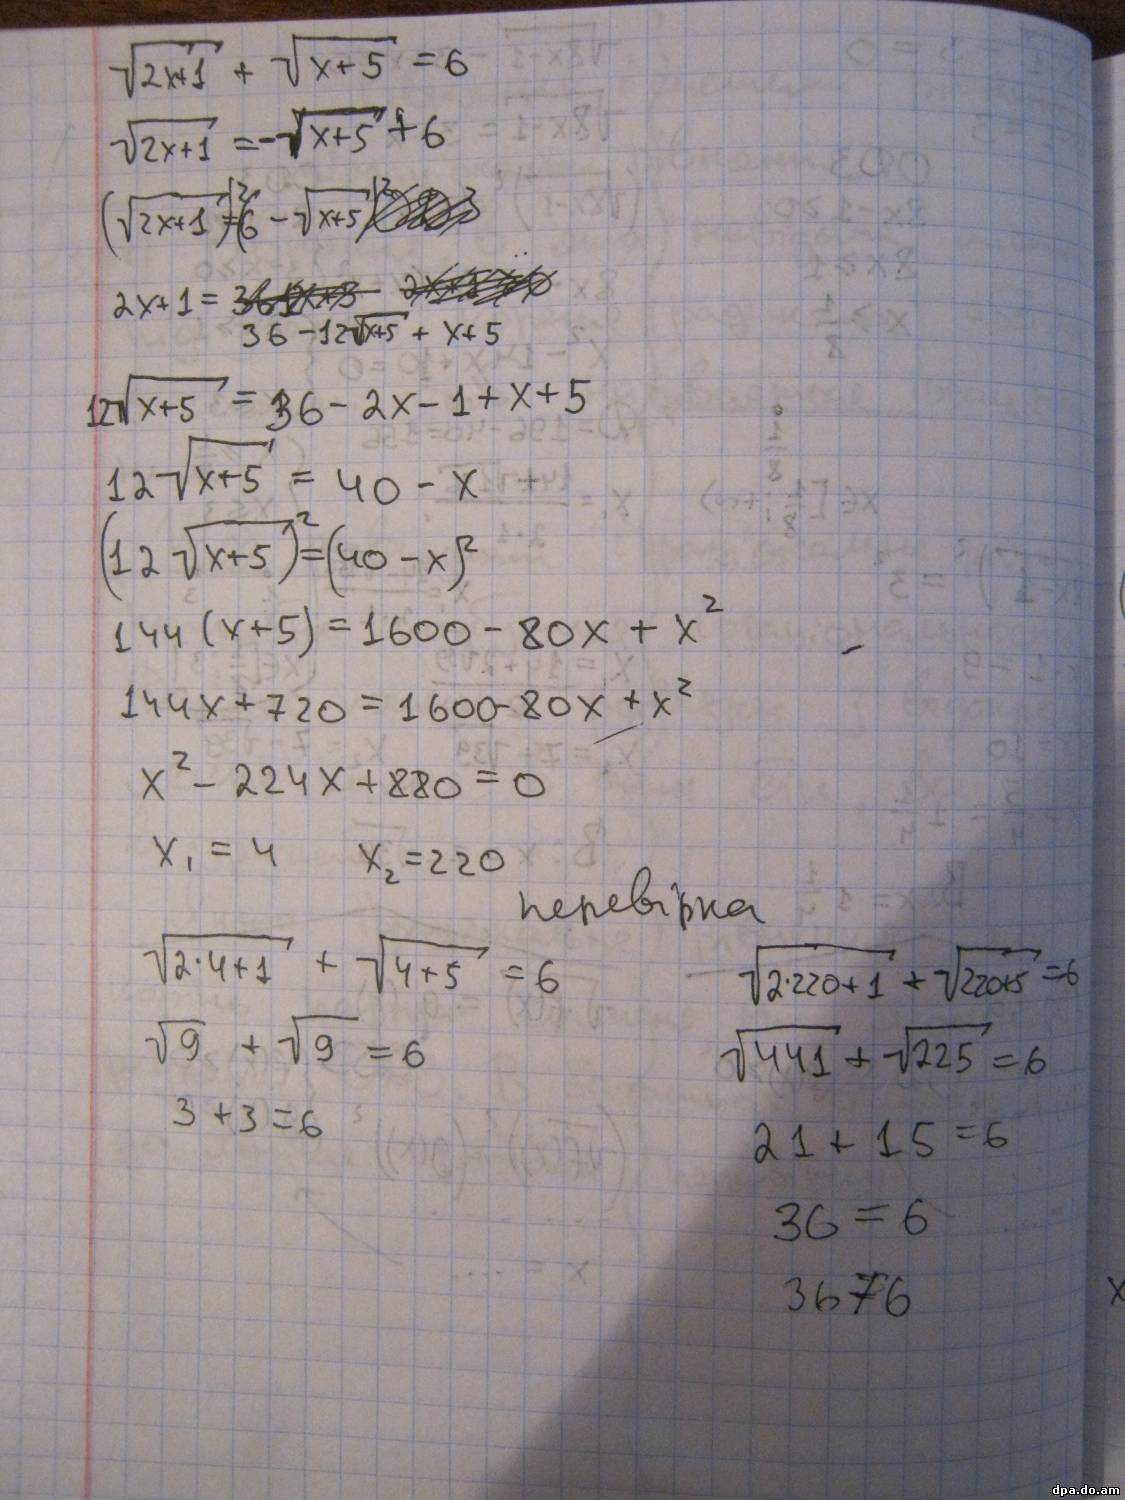 √(2x+1) + √(x+5) = 6
√(2x+1) = -√(x+5) + 6
(√(2x+1))² = (6 - √(x+5))²
2x+1 =
36 - 12√(x+5) + x+5
12√(x+5) = 36 - 2x - 1 + x + 5
12√(x+5) = 40 - x
(12√(x+5))² = (40 - x)²
144(x+5) = 1600 - 80x + x²
144x + 720 = 1600 - 80x + x²
x² - 224x + 880 = 0
x₁ = 4 x₂ = 220
перевірка
√(2·4+1) + √(4+5) = 6
√9 + √9 = 6
3 + 3 = 6
√(2·220+1) + √(220+5) = 6
√441 + √225 = 6
21 + 15 = 6
36 = 6
36 ≠ 6
x
dpa.do.am